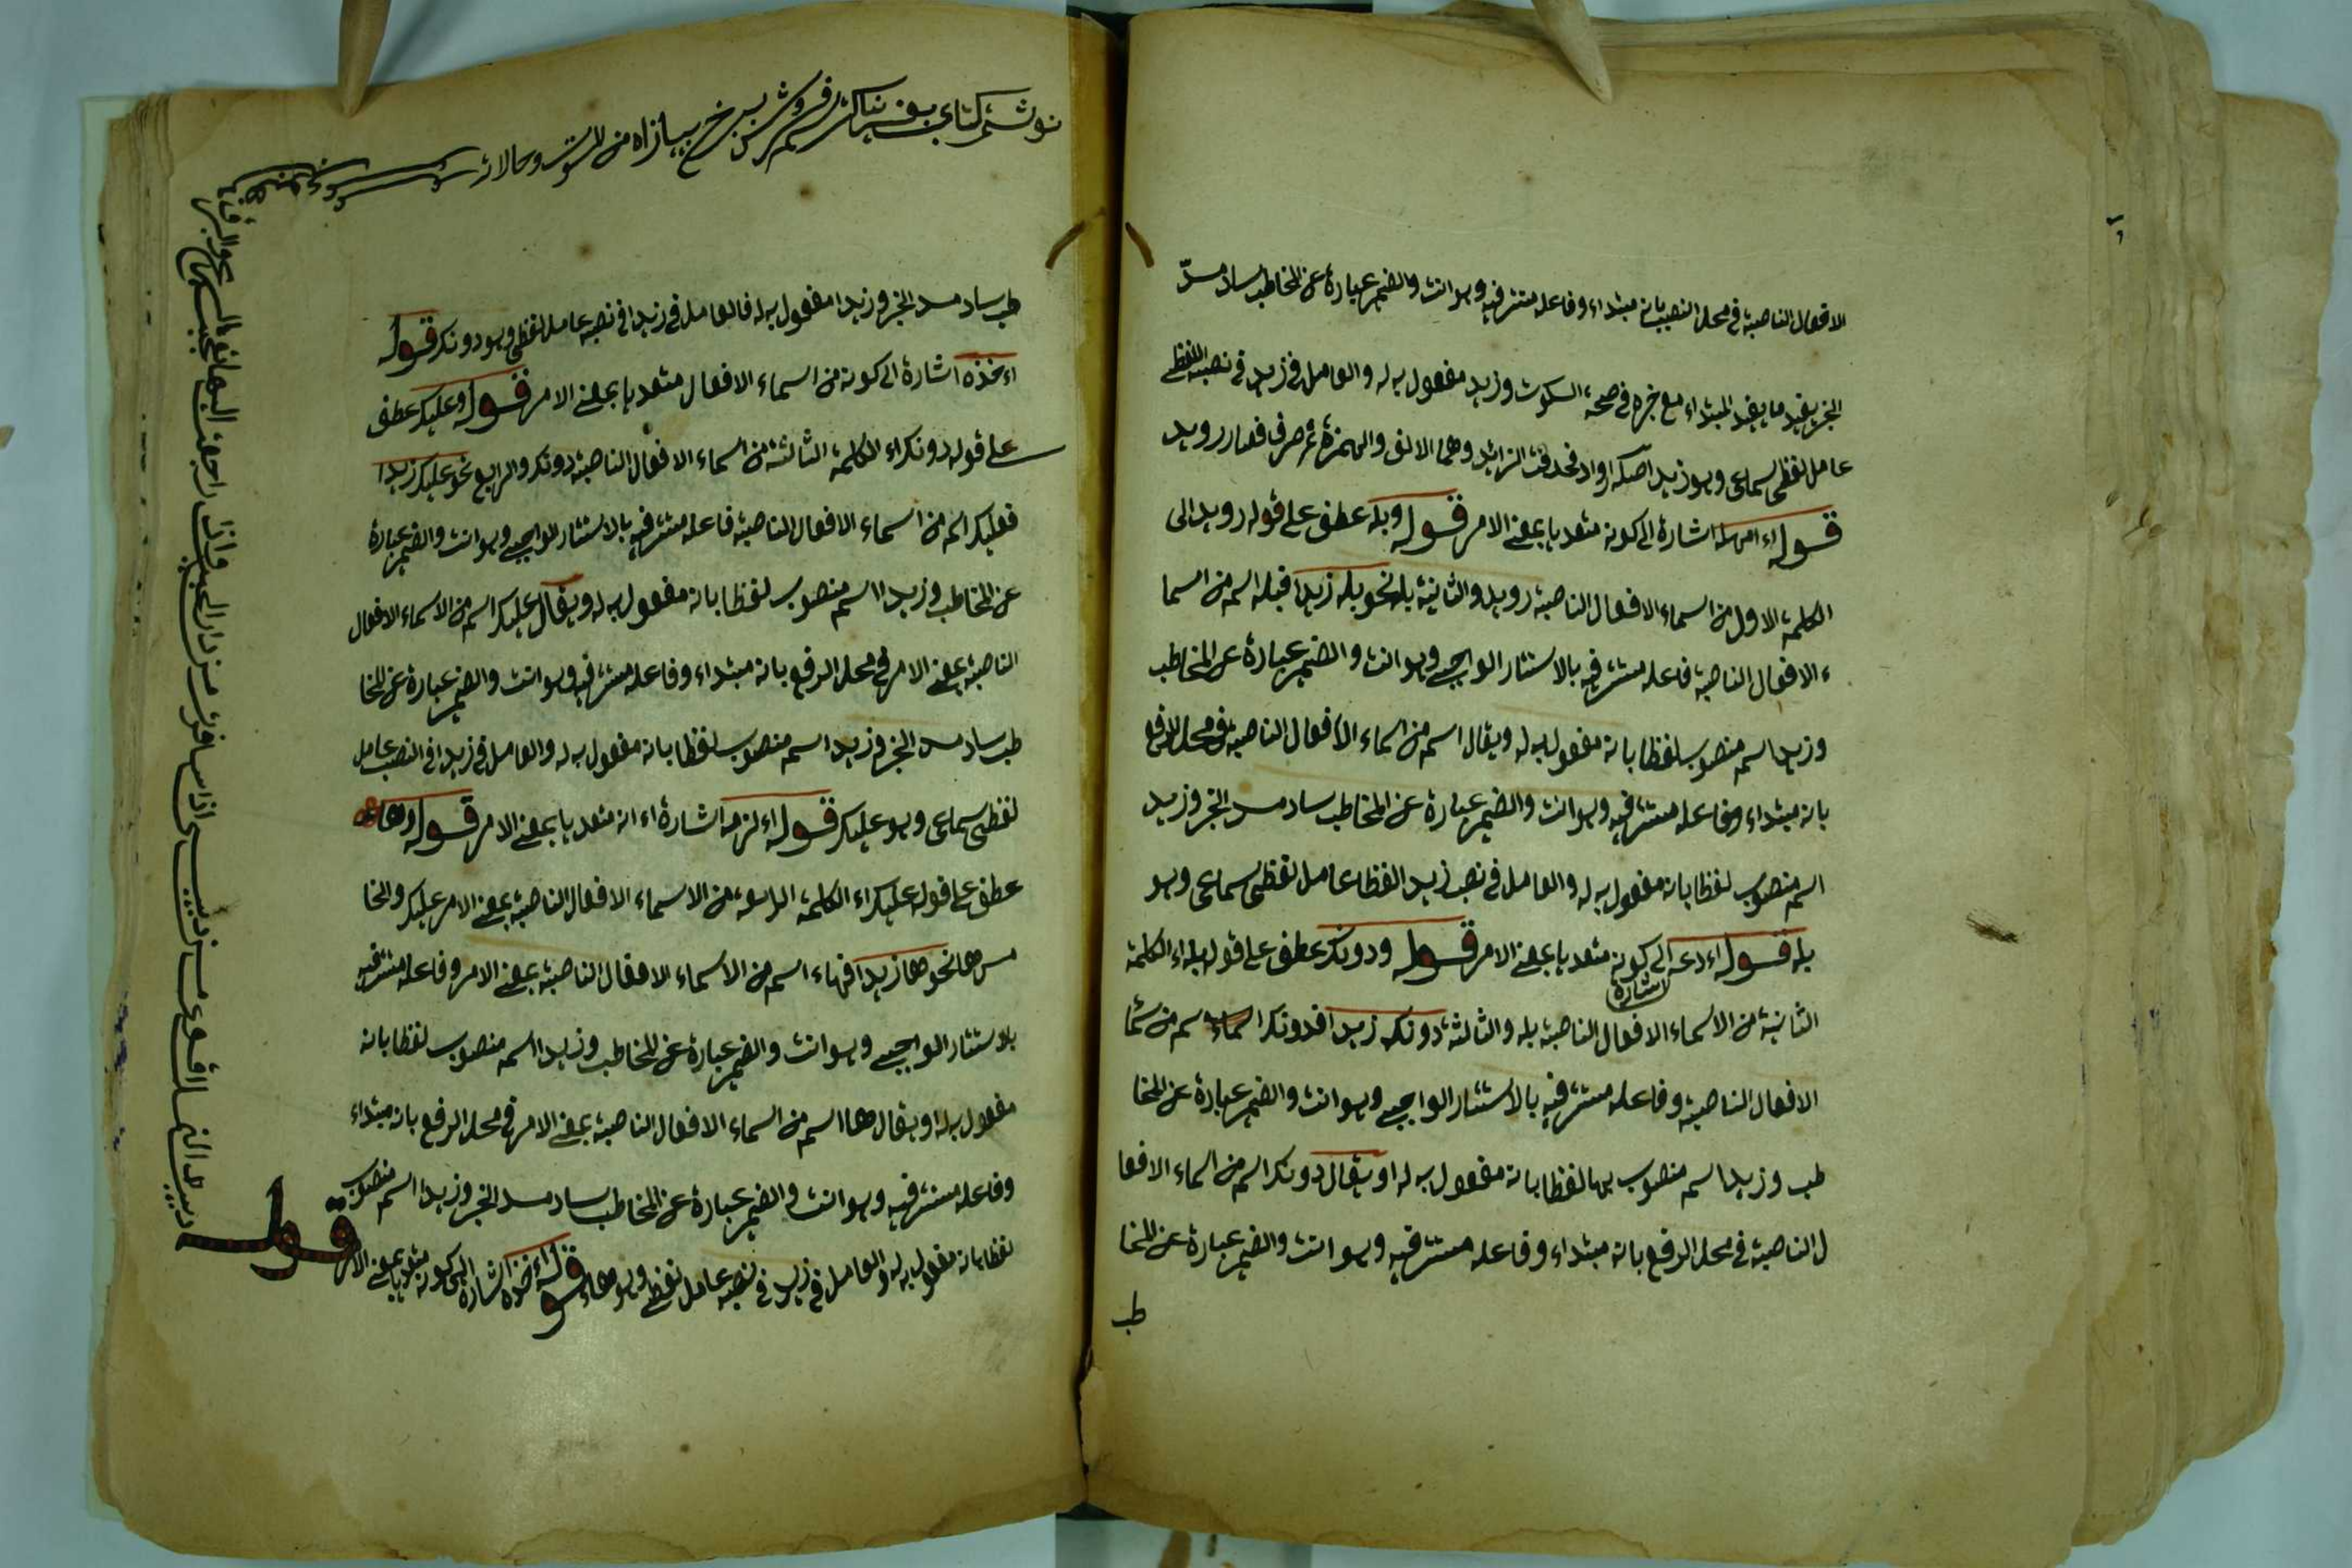 الافعال الناصبة في محل النصب بانه مبتداء وفاعله مستتر فيه وهو انت والضمير عبارة عن المخاطب ساد مسدّ
الخبر يفيد ما يفيد المبتداء مع خبره في صحة السكوت وزيد مفعول به له والعامل في زيد في نصبه اللفظے
عامل لفظی سماعی وهو زيد اصله ارواد فحذفت الزائد وهما الالف والهمزة ثم صرف فصار رويد
قوله اء امهله اشارة الی كونه متعديا بمعنے الامر قوله وبله عطف علے قوله رويد الی
الكلمة الاول من اسماء الافعال الناصبة رويد والثانية بله نحو بله زيدا فبله اسم من اسما
ء الافعال الناصبة فاعله مستتر فيه بالاستتار الواجبے وهو انت والضمير عبارة عن المخاطب
وزيدا اسم منصوب لفظا بانه مفعول به له ويقال اسم من اسماء الافعال الناصبة فی محل الرفع
بانه مبتداء وفاعله مستتر فيه وهو انت والضمير عبارة عن المخاطب ساد مسد الخبر وزيد
اسم منصوب لفظا بانه مفعول به له والعامل فی نصب زيد الفظا عامل لفظی سماعی وهو
بله قوله اء دعه اشارة الی كونه متعديا بمعنے الامر قوله ودونك عطف علے قوله بله اء الكلمة
الثانية من الاسماء الافعال الناصبة بله والثالثة دونك زيدا فدونك اسم من سما
الافعال الناصبة وفاعله مستتر فيه بالاستتار الواجبے وهو انت والضمير عبارة عن المخا
طب وزيدا اسم منصوب بها لفظا بانه مفعول به له او يقال دونك اسم من اسماء الافعا
ل الناصبة فی محل الرفع بانه مبتداء وفاعله مستتر فيه وهو انت والضمير عبارة عن المخا
طب
طب ساد مسد الخبر وزيدا مفعول به له فالعامل فی زيدا فی نصبه عامل لفظی وهو دونك قوله
اء خذه اشارة الی كونه من اسماء الافعال متعديا بمعنے الامر قوله وعليك عطف
علے قوله دونك اء الكلمة الثالثة من اسماء الافعال الناصبة دونك والرابع نحو عليك زيدا
فعليك اسم من اسماء الافعال الناصبة فاعله مستتر فيه بالاستتار الواجبے وهو انت والضمير عبارة
عن المخاطب وزيدا اسم منصوب لفظا بانه مفعول به له ويقال عليك اسم من الاسماء الافعال
الناصبة بمعنے الامر فی محل الرفع بانه مبتداء وفاعله مستتر فيه وهو انت والضمير عبارة عن المخا
طب ساد مسد الخبر وزيدا اسم منصوب لفظا بانه مفعول به له والعامل فی زيدا فی النصب عامل
لفظی سماعی وهو عليك قوله اء لزمه اشارة اء انه متعديا بمعنے الامر قوله وهاء
عطف علے قوله عليك اء الكلمة الرابعة من الاسماء الافعال الناصبة بمعنے الامر عليك والخا
مس ها نحو ها زيدا فهاء اسم من الاسماء الافعال الناصبة بمعنے الامر وفاعله مستتر فيه
بلاستتار الواجبے وهو انت والضمير عبارة عن المخاطب وزيدا اسم منصوب لفظا بانه
مفعول به له او يقال ها اسم من اسماء الافعال الناصبة بمعنے الامر فی محل الرفع بانه مبتداء
وفاعله مستتر فيه وهو انت والضمير عبارة عن المخاطب ساد مسد الخبر وزيدا اسم منصوب
لفظا بانه مفعول به له والعامل فی زيد فی نصبه عامل لفظے وهو هاء قوله اء خذه اشارة الی كونه متعديا بمعنے الامر
قوله